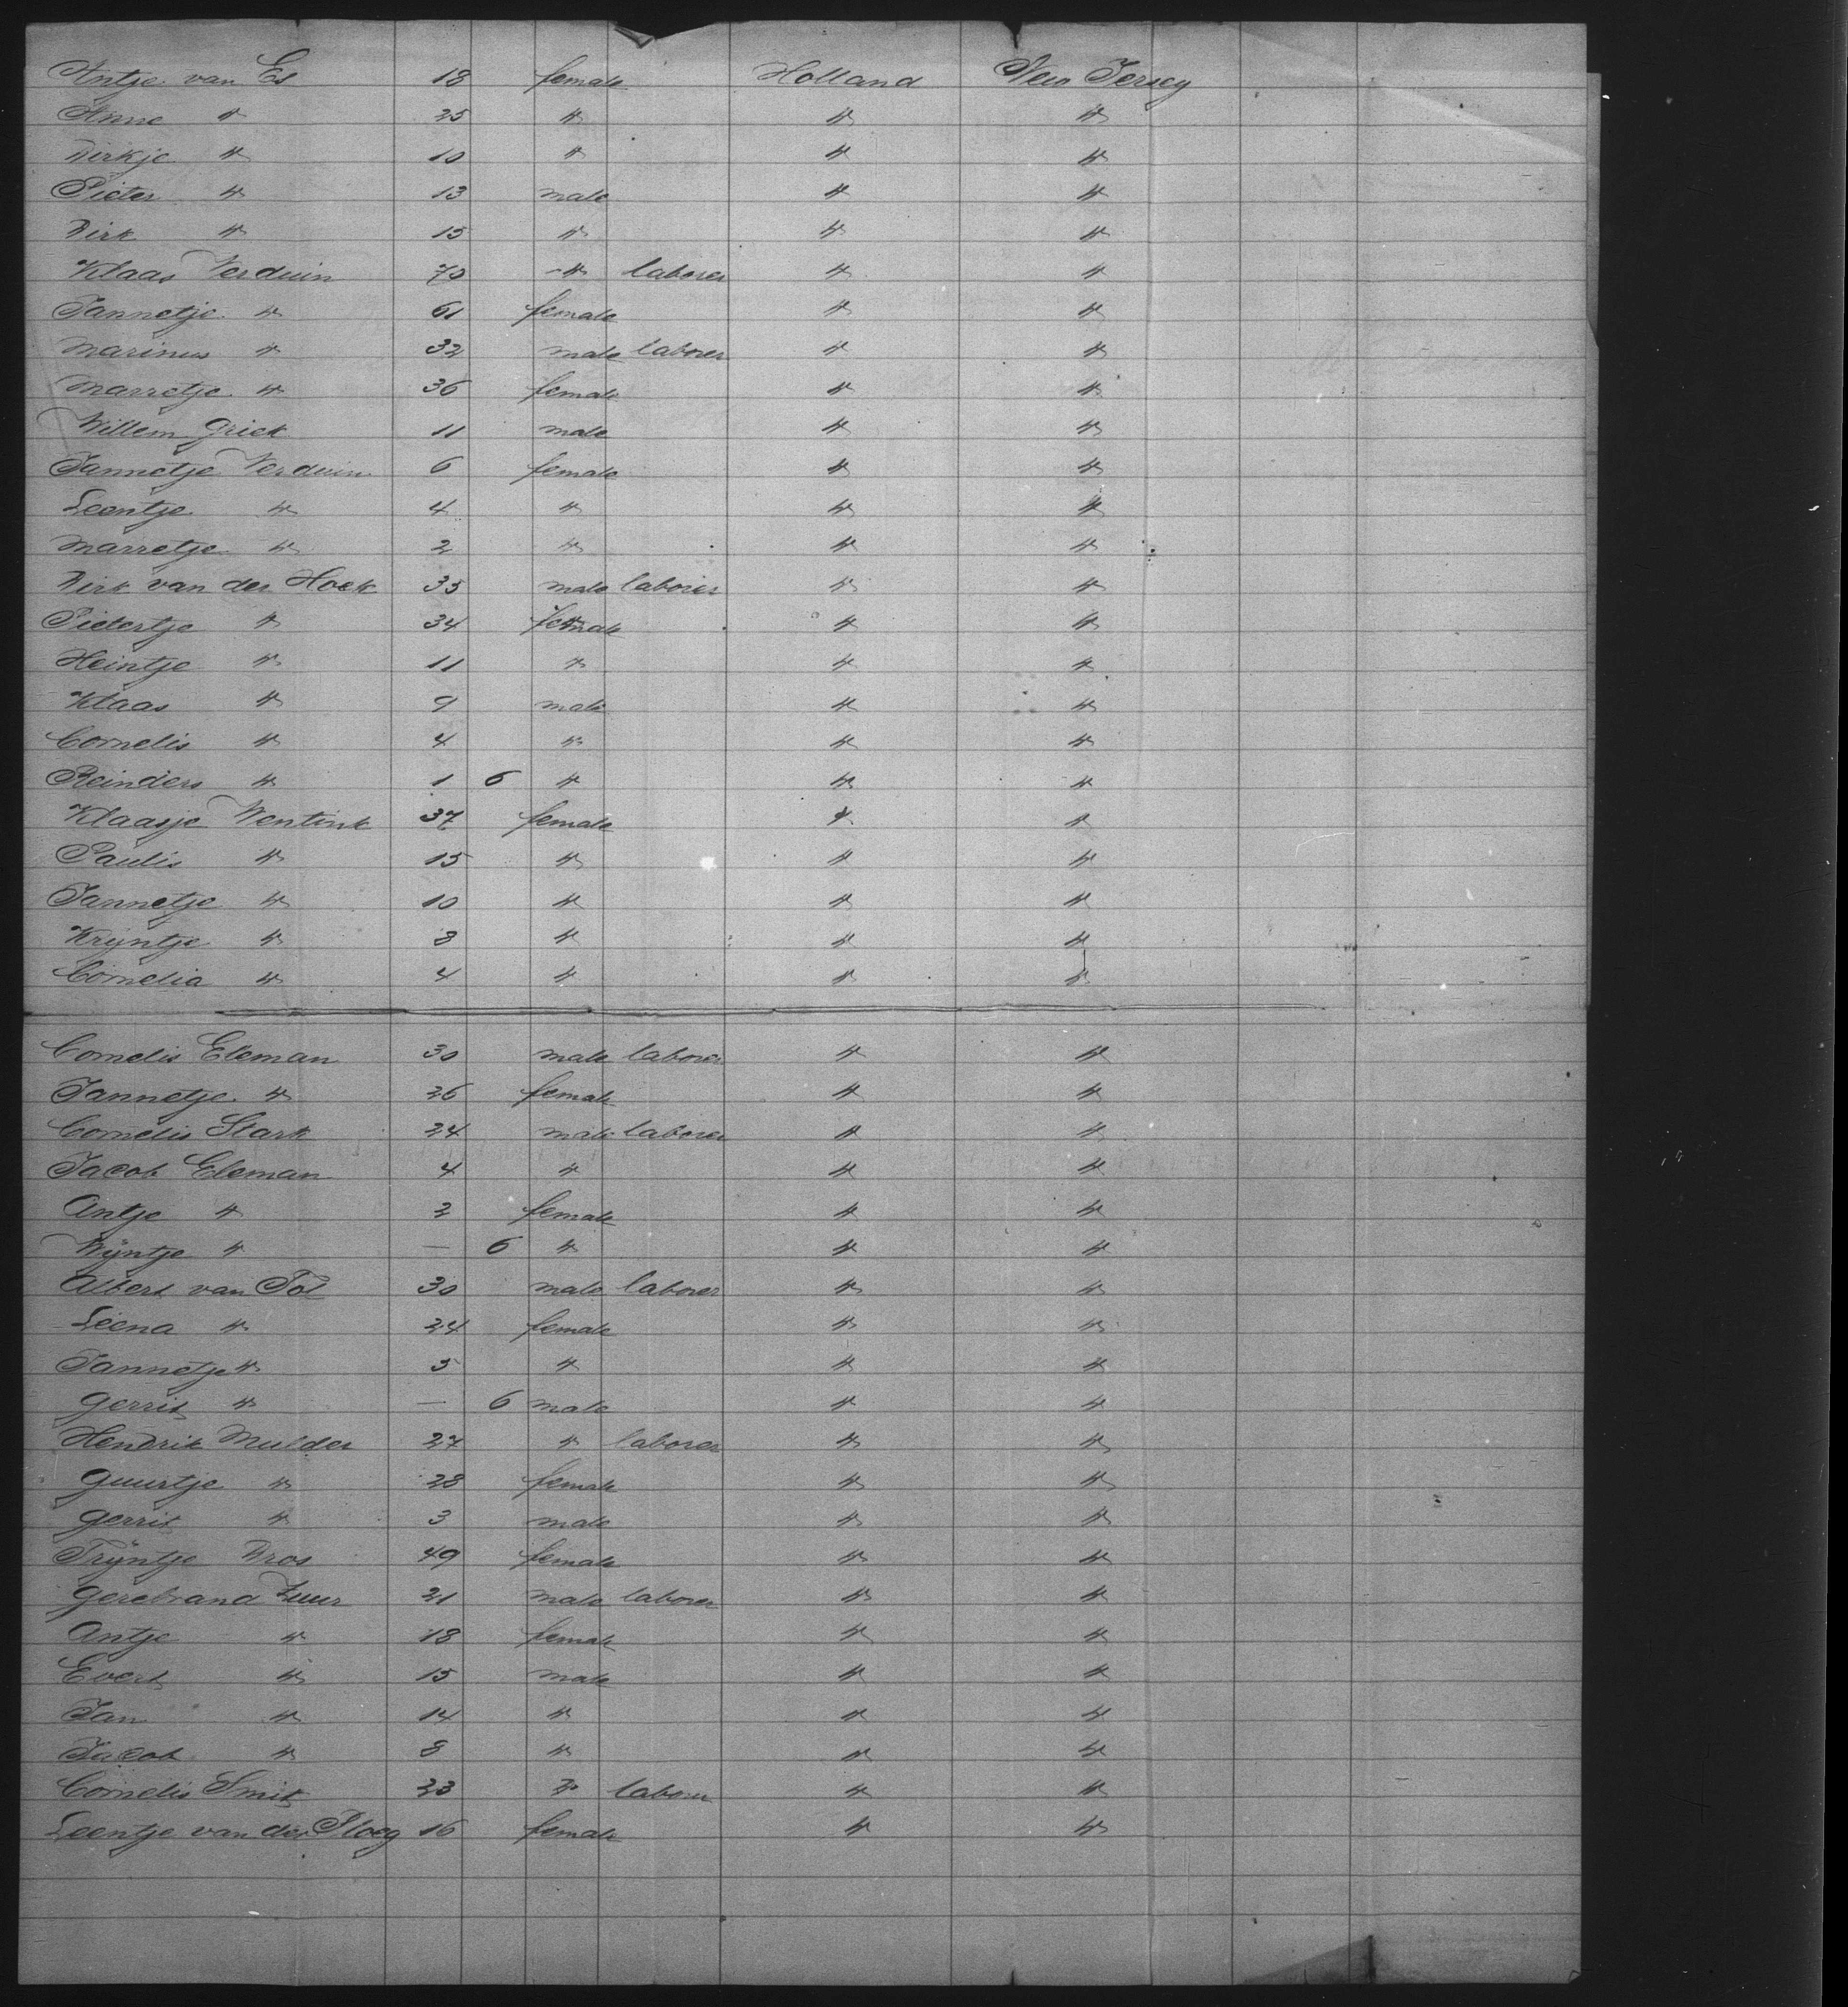 Antje van Es 18 female Holland New Jersey
Anne " 25 " " "
Dirkje " 10 " " "
Pieter " 13 male " "
Dirk " 15 " " "
Klaas Verduin 70 " laborer " "
Jannetje " 61 female " "
Marinus " 32 male laborer " "
Marretje " 36 female " "
Willem Griek 11 male " "
Jannetje Verduin 6 female " "
Leentje " 4 " " "
Marretje " 2 " " "
Dirk van der Hoek 35 male laborer " "
Pietertje " 34 female " "
Heintje " 11 " " "
Klaas " 9 male " "
Cornelis " 4 " " "
Reinders " 1 6 " " "
Klaasje Wentink 37 female " "
Paulis " 15 " " "
Jannetje " 10 " " "
Krijntje " 8 " " "
Cornelia " 4 " " "
Cornelis Eleman 30 male laborer " "
Jannetje " 26 female " "
Cornelis Stark 24 male laborer " "
Jacob Eleman 4 " " "
Antje " 2 female " "
Wijntje " — 6 " " "
Albert van Tol 30 male laborer " "
Leena " 24 female " "
Jannetje " 5 " " "
Gerrit " — 6 male " "
Hendrik Mulder 27 " laborer " "
Guurtje " 28 female " "
Gerrit " 3 male " "
Trijntje Dros 49 female " "
Gerebrand Zuur 21 male laborer " "
Antje " 18 female " "
Evert " 15 male " "
Jan " 14 " " "
Jacob " 8 " " "
Cornelis Smit 23 " laborer " "
Leentje van der Ploeg 16 female " "